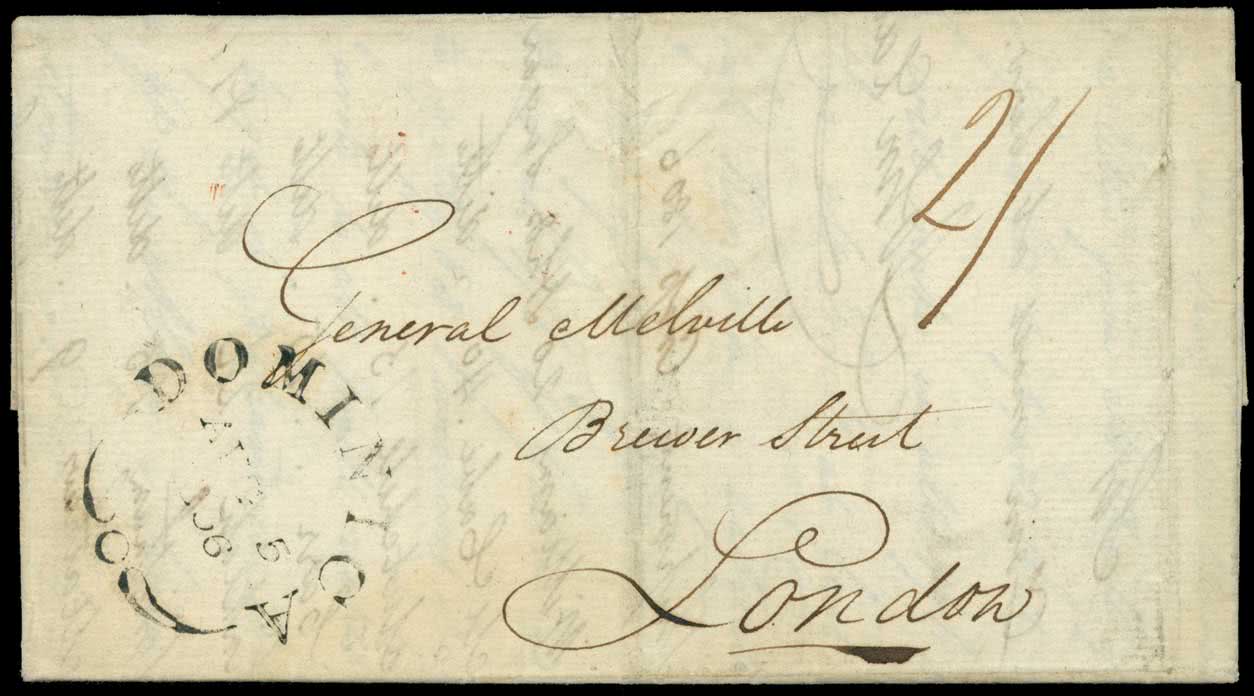 2/
General Melville
Brewer Street
London
DOMINICA
5